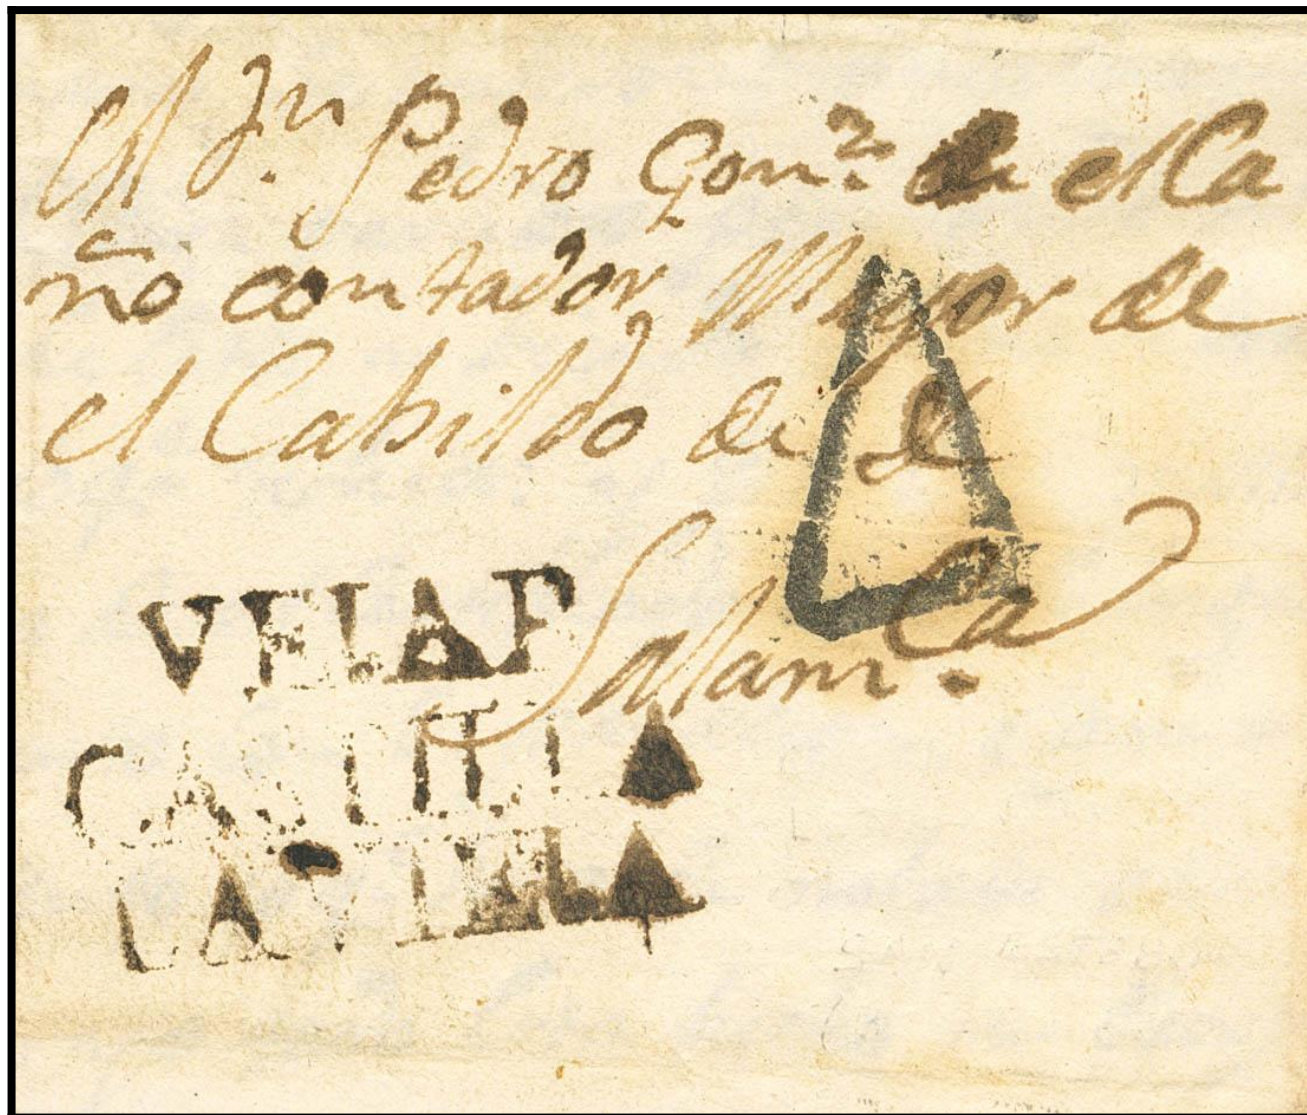 Al Sr. Pedro Gonz. de el Ca
ño contador Mayor de
el Cabildo de
Salamca.
VEJAR
CASTILLA
LA VIEJA